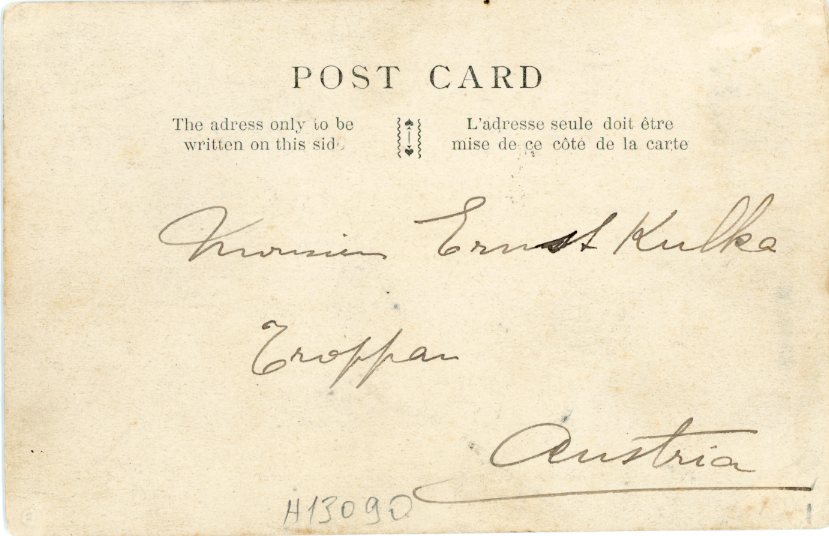 POST CARD
The adress only to be
written on this side
L'adresse seule doit être
mise de ce côté de la carte
Monsieur Ernst Kulka
Troppau
Austria
H13090